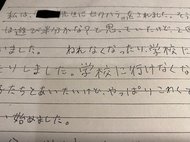 私は 先生にセクハラをされました。
は遊び半分かな?と思っていたけど、
いました。 われなくなったり、学校に
たりしました。学校に行けなくな
子たちとあいたいけど、やっぱりこわくて
い始めました。